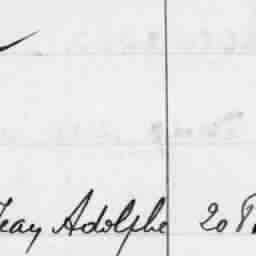 Jean Adolphe 20